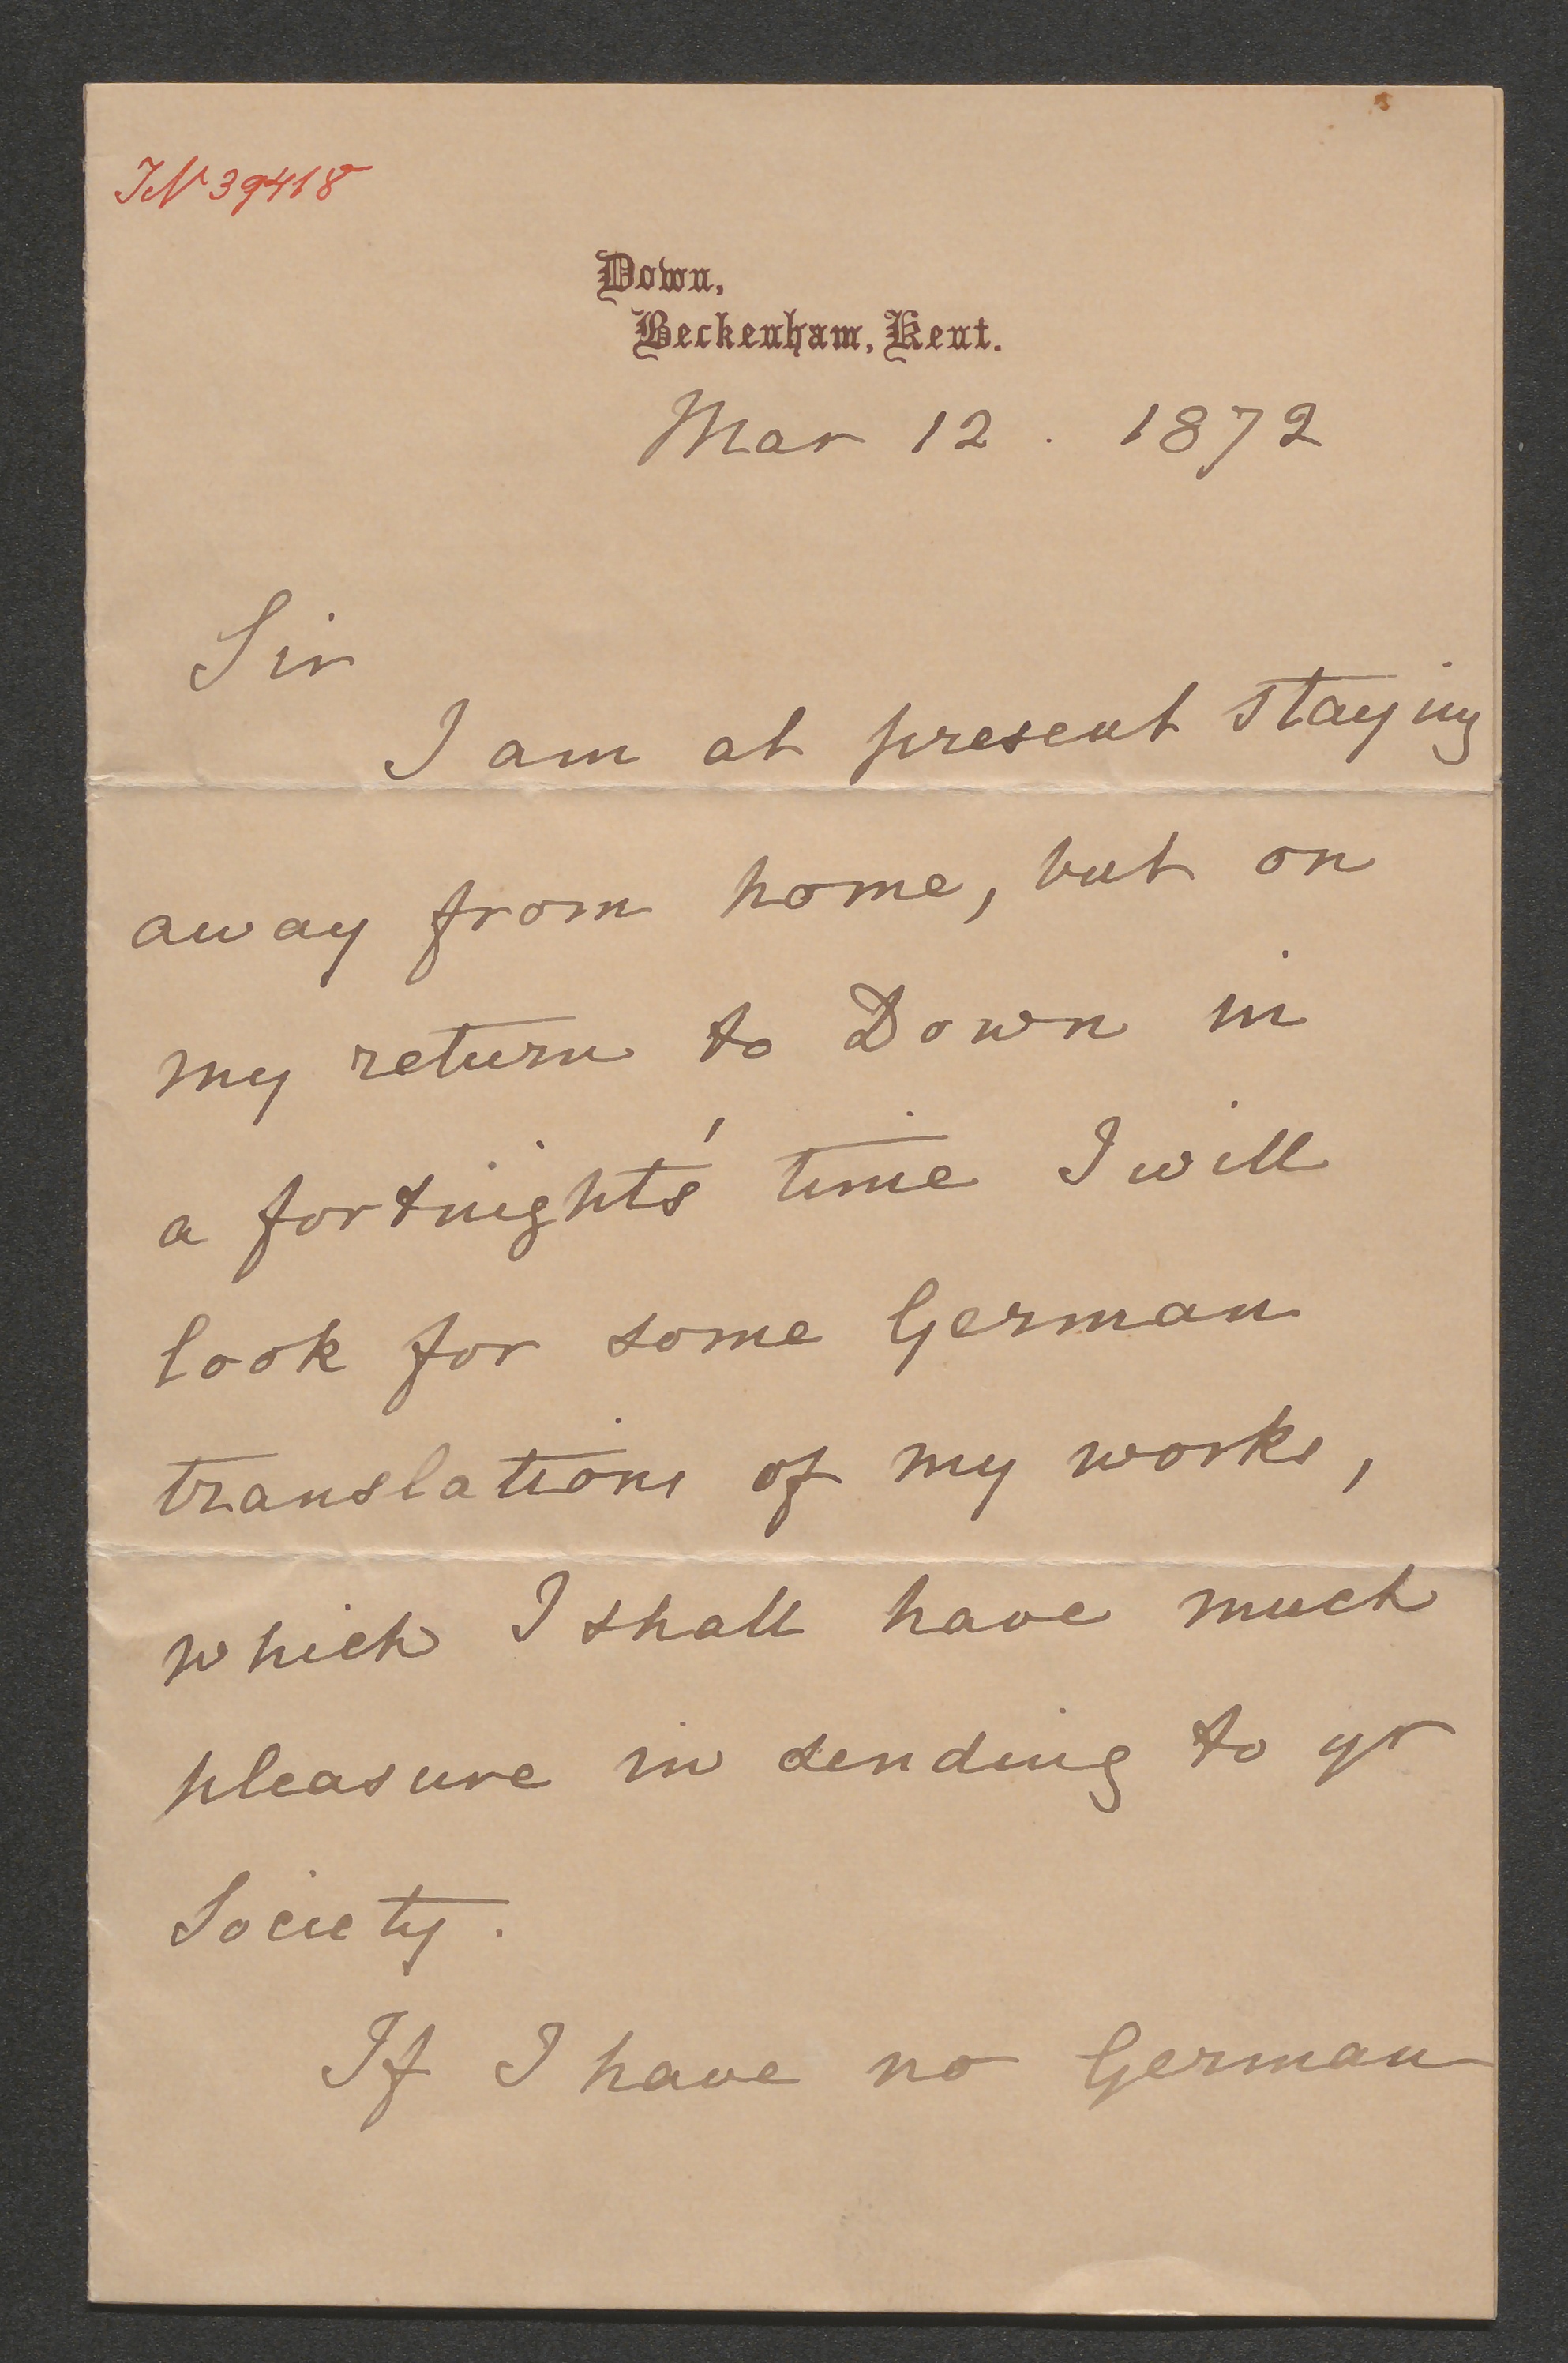 IN 39418
Down,
Beckenham, Kent.
Mar 12. 1872
Sir
I am at present staying
away from home, but on
my return to Down in
a fortnight's time I will
look for some German
translations of my works,
which I shall have much
pleasure in sending to yr
Society.
If I have no German